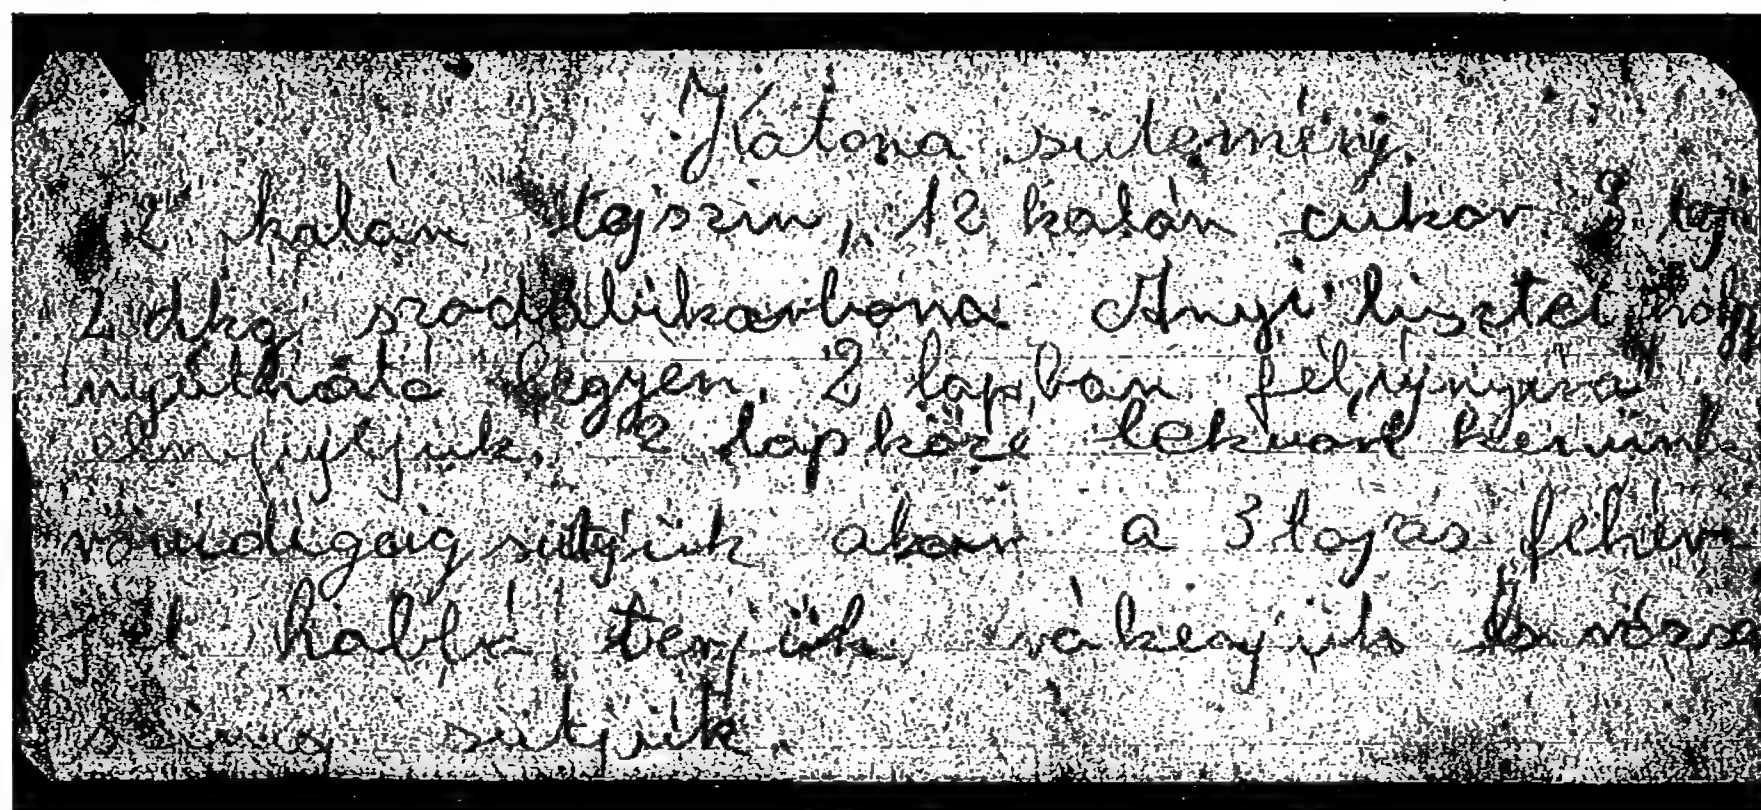 Katona sütemény.
12 kalán tejszin, 12 kalán cukor 3 toj
2 dkg szodabikarbona Anyi liszttel hogy
nyútható legyen. 2 lapban félújnyira
elnyujtjuk. 2 lap közé lekvárt kerünk
sütjük akor a 3 tojás fehér
jét habbá verjük rákenjük és rózsa
szinüre sütjük.